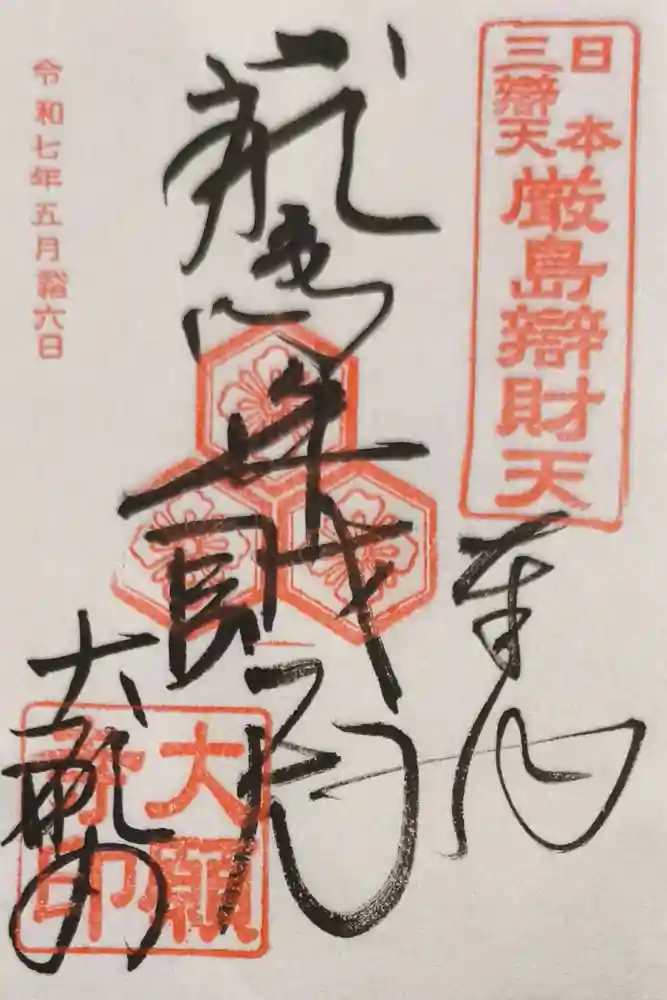 日本
三辯天
厳島辯財天
奉拝
令和七年五月拾六日
大願寺
大願
寺印